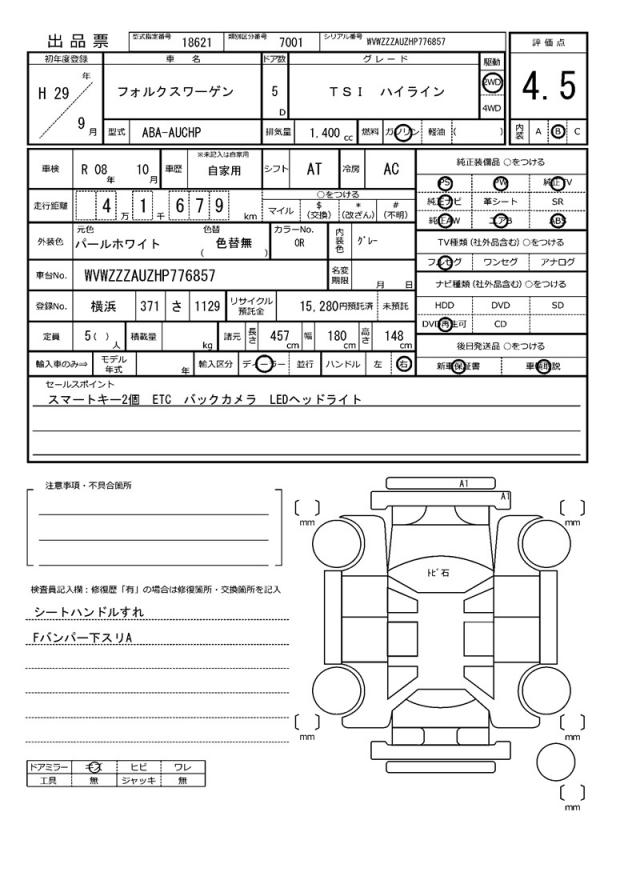 出品票 型式指定番号 18621 類別区分番号 7001 シリアル番号 WVWZZZAUZHP776857
評価点
4.5
内装 A B C
初年度登録 車名 ドア数 グレード 駆動
H 29 年 9 月 フォルクスワーゲン 5 D TSI ハイライン 2WD 4WD
型式 ABA-AUCHP 排気量 1,400 cc 燃料 ガソリン 軽油 ( )
車検 R 08 年 10 月 車歴 ※未記入は自家用 自家用 シフト AT 冷房 AC
走行距離 4 万 1 千 6 7 9 km
○をつける
マイル $(交換) *(改ざん) #(不明)
外装色 元色 パールホワイト 色替 色替無 ( ) カラーNo. 0R 内装色 グレー
車台No. WVWZZZAUZHP776857 名変期限 月 日
登録No. 横浜 371 さ 1129 リサイクル預託金 15,280円預託済 未預託
定員 5( ) 人 積載量 kg 諸元 長さ 457 cm 幅 180 cm 高さ 148 cm
輸入車のみ⇒ モデル年式 年 輸入区分 ディーラー 並行 ハンドル 左 右
純正装備品 ○をつける
PS PW 純正TV
純正ナビ 革シート SR
純正AW エアB ABS
TV種類(社外品含む) ○をつける
フルセグ ワンセグ アナログ
ナビ種類(社外品含む) ○をつける
HDD DVD SD
DVD再生可 CD
後日発送品 ○をつける
新車保証書 車輌取説
セールスポイント
スマートキー2個 ETC バックカメラ LEDヘッドライト
注意事項・不具合箇所
検査員記入欄：修復歴「有」の場合は修復箇所・交換箇所を記入
シートハンドルすれ
Fバンパー下スリA
ドアミラー キズ ヒビ ワレ
工具 無 ジャッキ 無
A1
A1
トビ石
mm
mm
mm
mm
mm